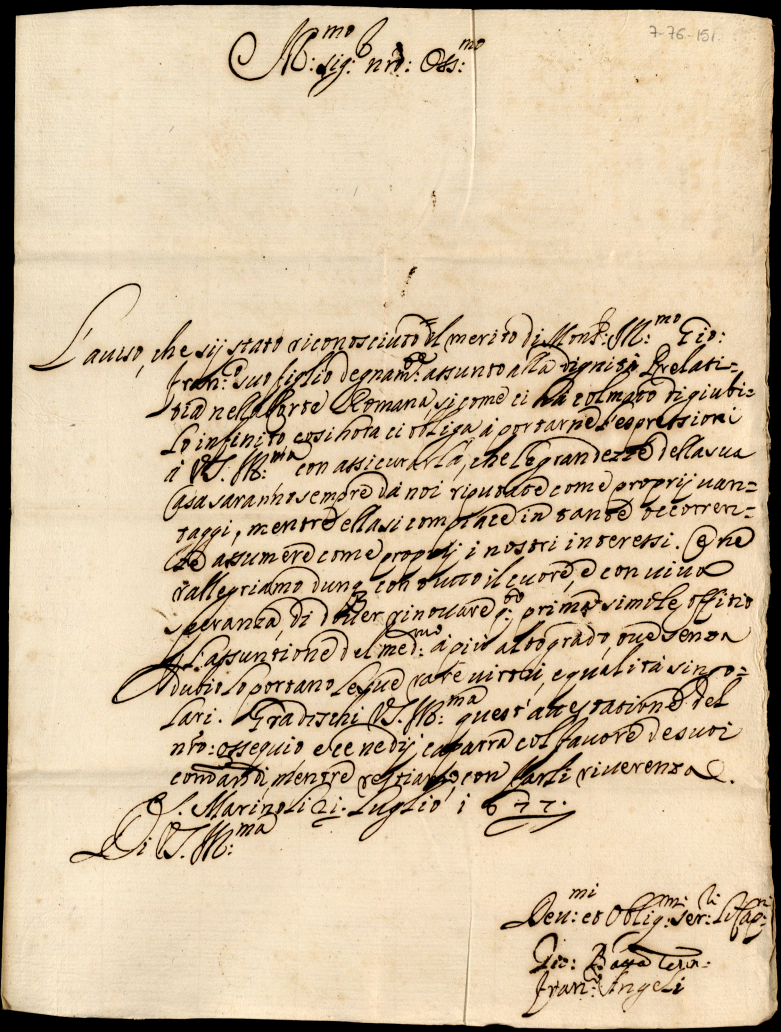 7-76-151
Ill:mo
Sig: nro: Oss:mo
L'auiso, che sij stato riconosciuto il merito di Mons: Ill:mo Gio:
Fran:co suo figlio degnam:te assunto alla dignità Prelati-
tia nella Corte Romana, si come ci hà colmato di giubi-
lo infinito così hora ci obliga à portarne l'espressioni
à V.S. Ill:ma con assicurarla, che le grandezze della sua
Casa saranno sempre da noi riputate come proprij uan-
taggi, mentre ella si compiace in tante occorren-
ze assumere come proprij i nostri interessi. Ce ne
rallegriamo dunq con tutto il cuore, e con uiua
speranza, di douer rinouare q:to prima simile offitio
p l'assuntione del med:mo à più alto grado, oue senza
dubio lo portano le sue rare uirtù, e qualità singo-
lari. Gradischi V.S. Ill:ma quest'attestatione del
nro: ossequio e ce ne dij caparra col fauore de suoi
comandi mentre restiamo con farli riuerenza.
S. Marino li 21. Luglio 1677.
Di V.S. Ill:ma
Deu:mi et Oblig:mi Ser:ri li Cap:ni
Gio: Batta
Fran:co Angeli